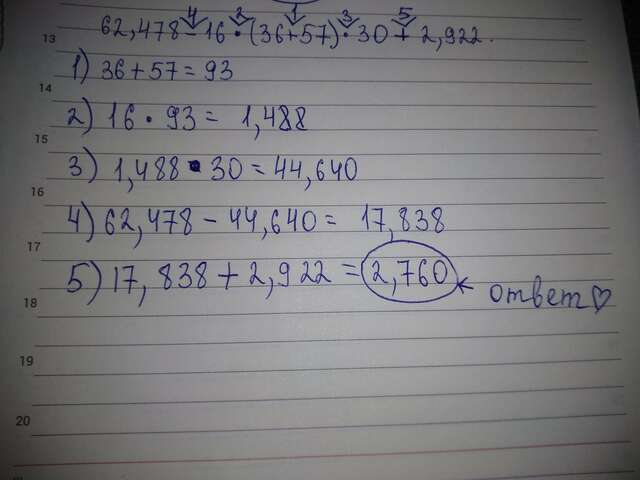 4 2 1 3 5
13 62,478 - 16 • (36+57) • 30 + 2,922.
1) 36+57 = 93
14
2) 16 • 93 = 1,488
15
3) 1,488 • 30 = 44,640
16
4) 62,478 - 44,640 = 17,838
17
5) 17,838 + 2,922 = 2,760 ← ответ♡
18
19
20